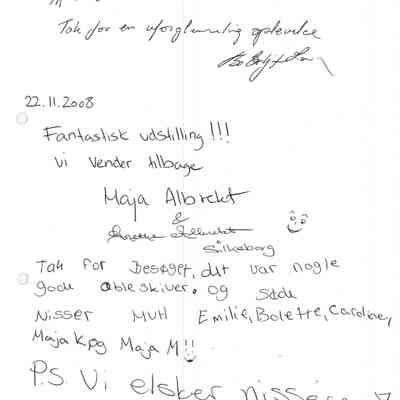 Tak for en uforglemmelig oplevelse
22.11.2008
Fantastisk udstilling!!!
vi vender tilbage
Maja Albrekt
&
Albrekt
Silkeborg
Tak for Besøget, det var nogle
gode æbleskiver. og søde
Nisser MVH Emilie, Bolette, Caroline,
Maja K og Maja M!!
P.S. Vi elsker nisserne